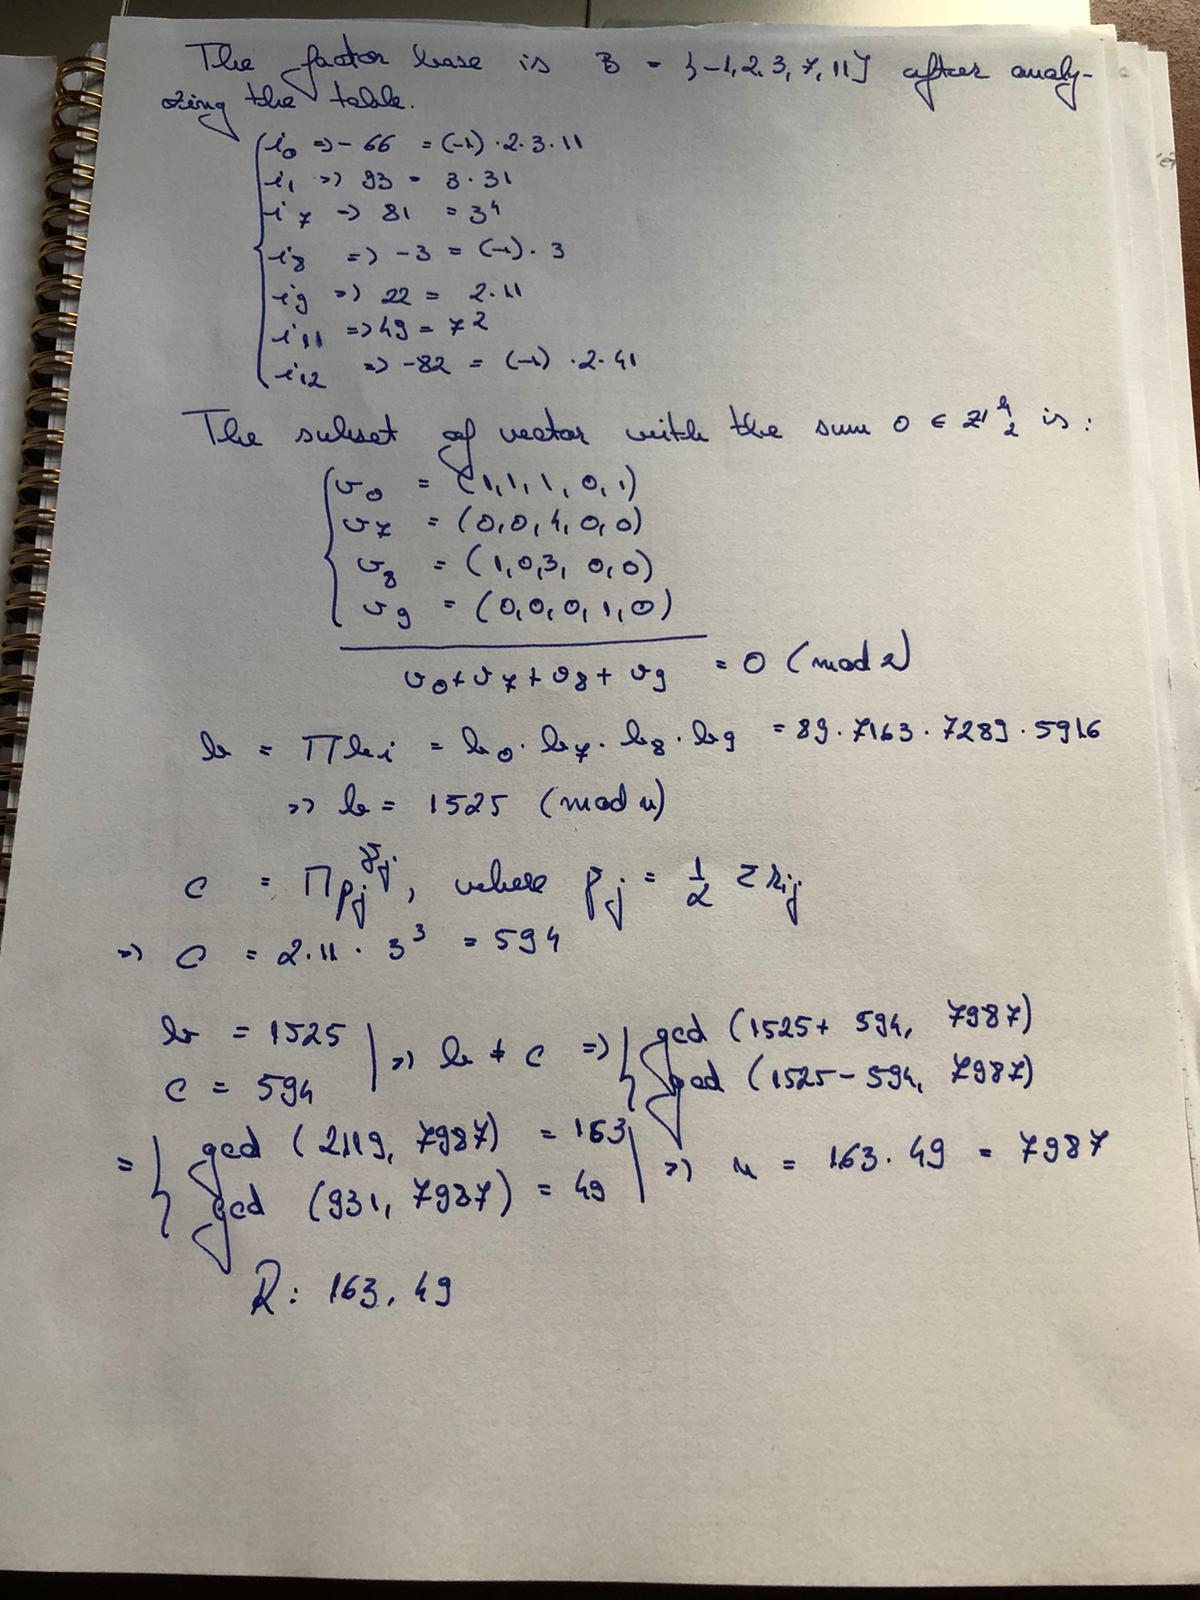 The factor base is B = {-1, 2, 3, 7, 11} after analy-
zing the table.
i0 => - 66 = (-1) · 2 · 3 · 11
i1 => 93 = 3 · 31
i7 => 81 = 3^4
i8 => -3 = (-1) · 3
i9 => 22 = 2 · 11
i11 => 49 = 7^2
i12 => -82 = (-1) · 2 · 41
The subset of vector with the sum 0 ∈ Z_2^4 is :
v0 = (1, 1, 1, 0, 1)
v7 = (0, 0, 4, 0, 0)
v8 = (1, 0, 3, 0, 0)
v9 = (0, 0, 0, 1, 0)
v0 + v7 + v8 + v9 = 0 (mod 2)
b = Π bi = b0 · b7 · b8 · b9 = 89 · 7163 · 7289 · 5916
=> b = 1525 (mod n)
c = Π pj^γj, where γj = 1/2 Σ rij
=> c = 2 · 11 · 3^3 = 594
b = 1525
c = 594
=> b ≠ c => gcd (1525 + 594, 7987)
gcd (1525 - 594, 7987)
= gcd (2119, 7987) = 163
gcd (931, 7987) = 49
=> n = 163 · 49 = 7987
R: 163, 49